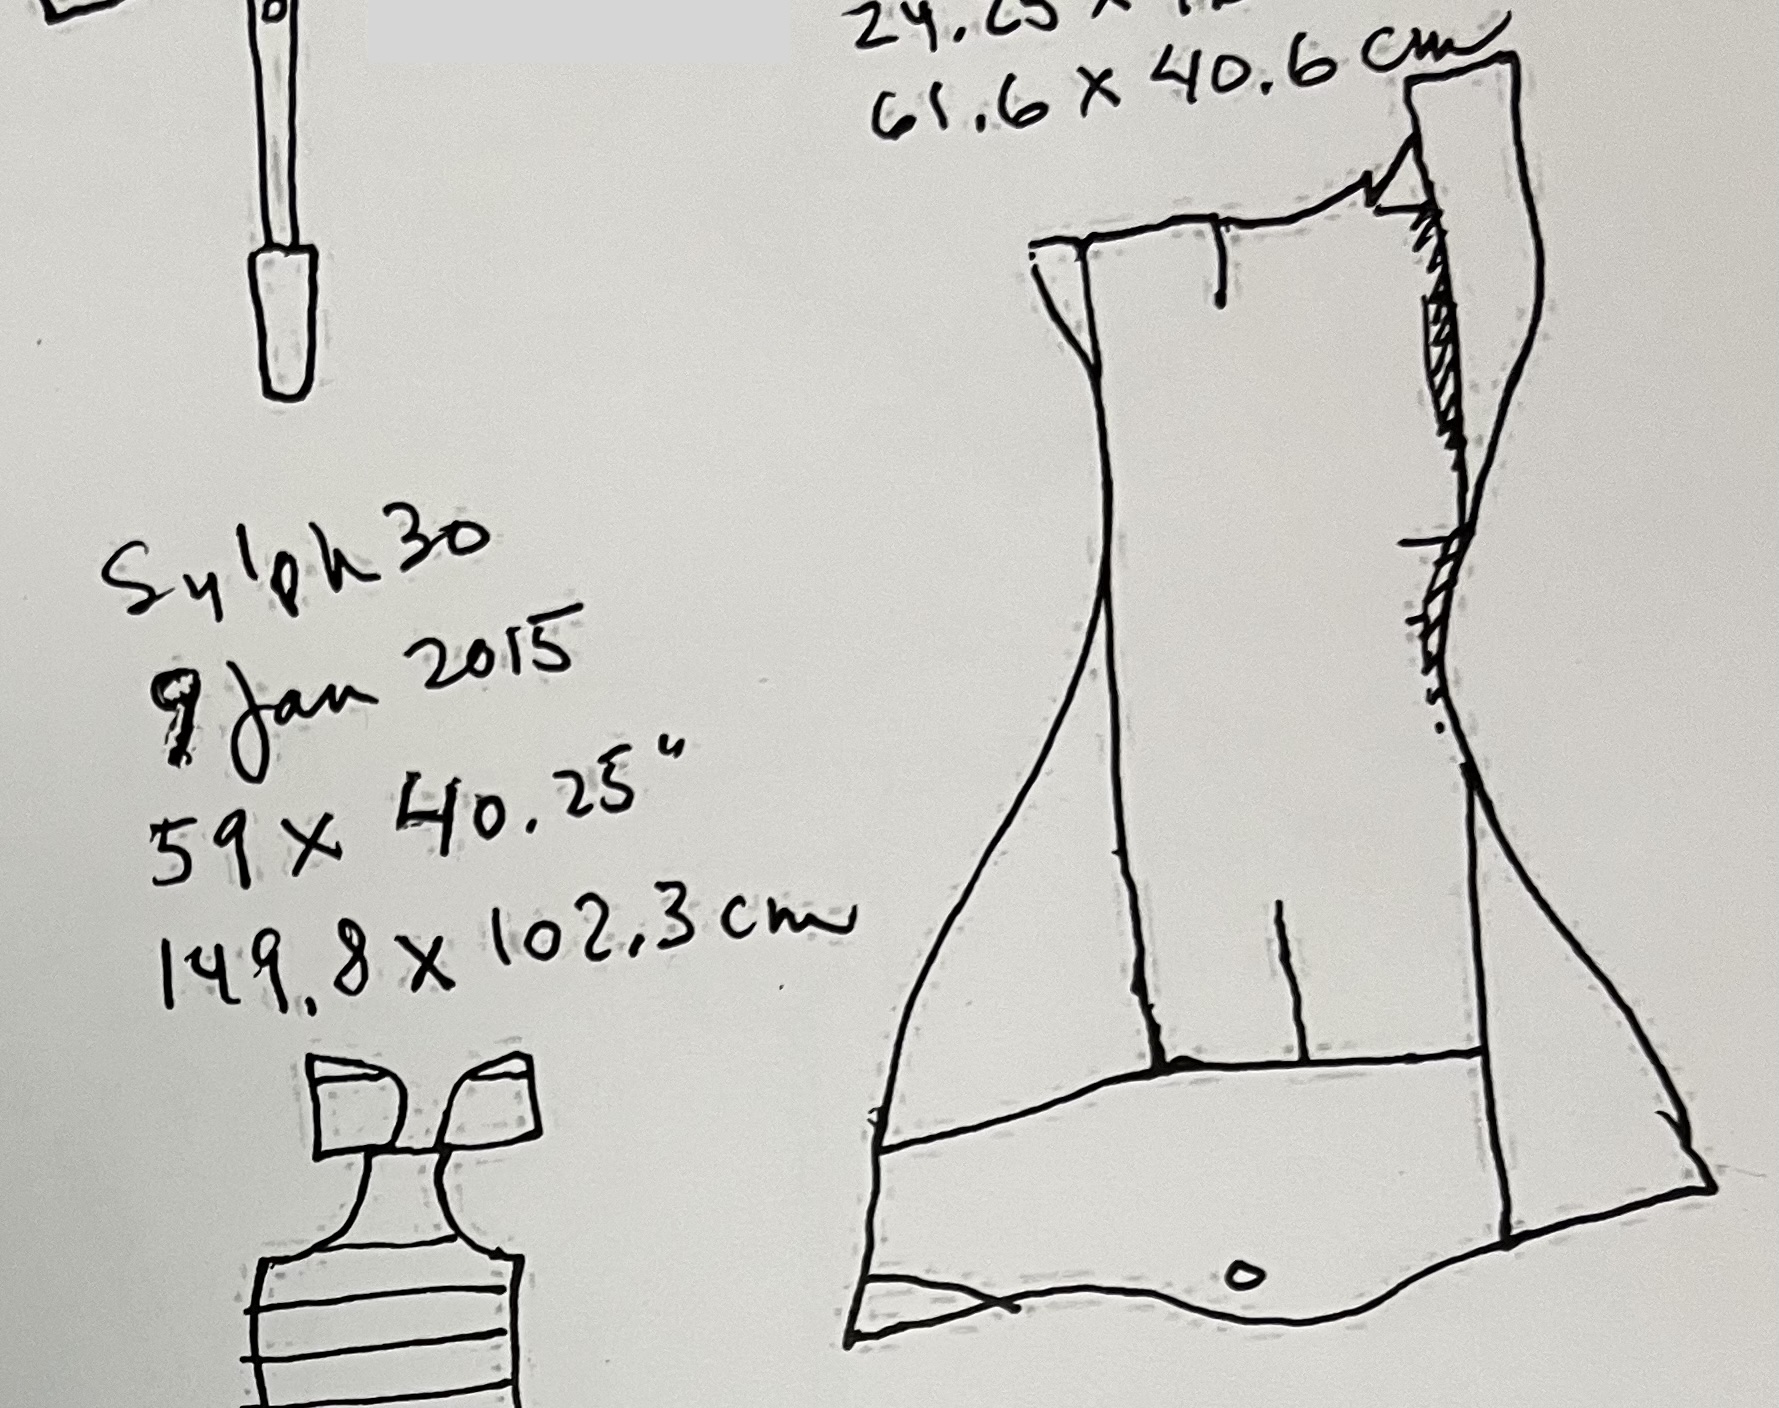 61.6 x 40.6 cm
Sylph 30
9 Jan 2015
59 x 40.25"
149.8 x 102.3 cm